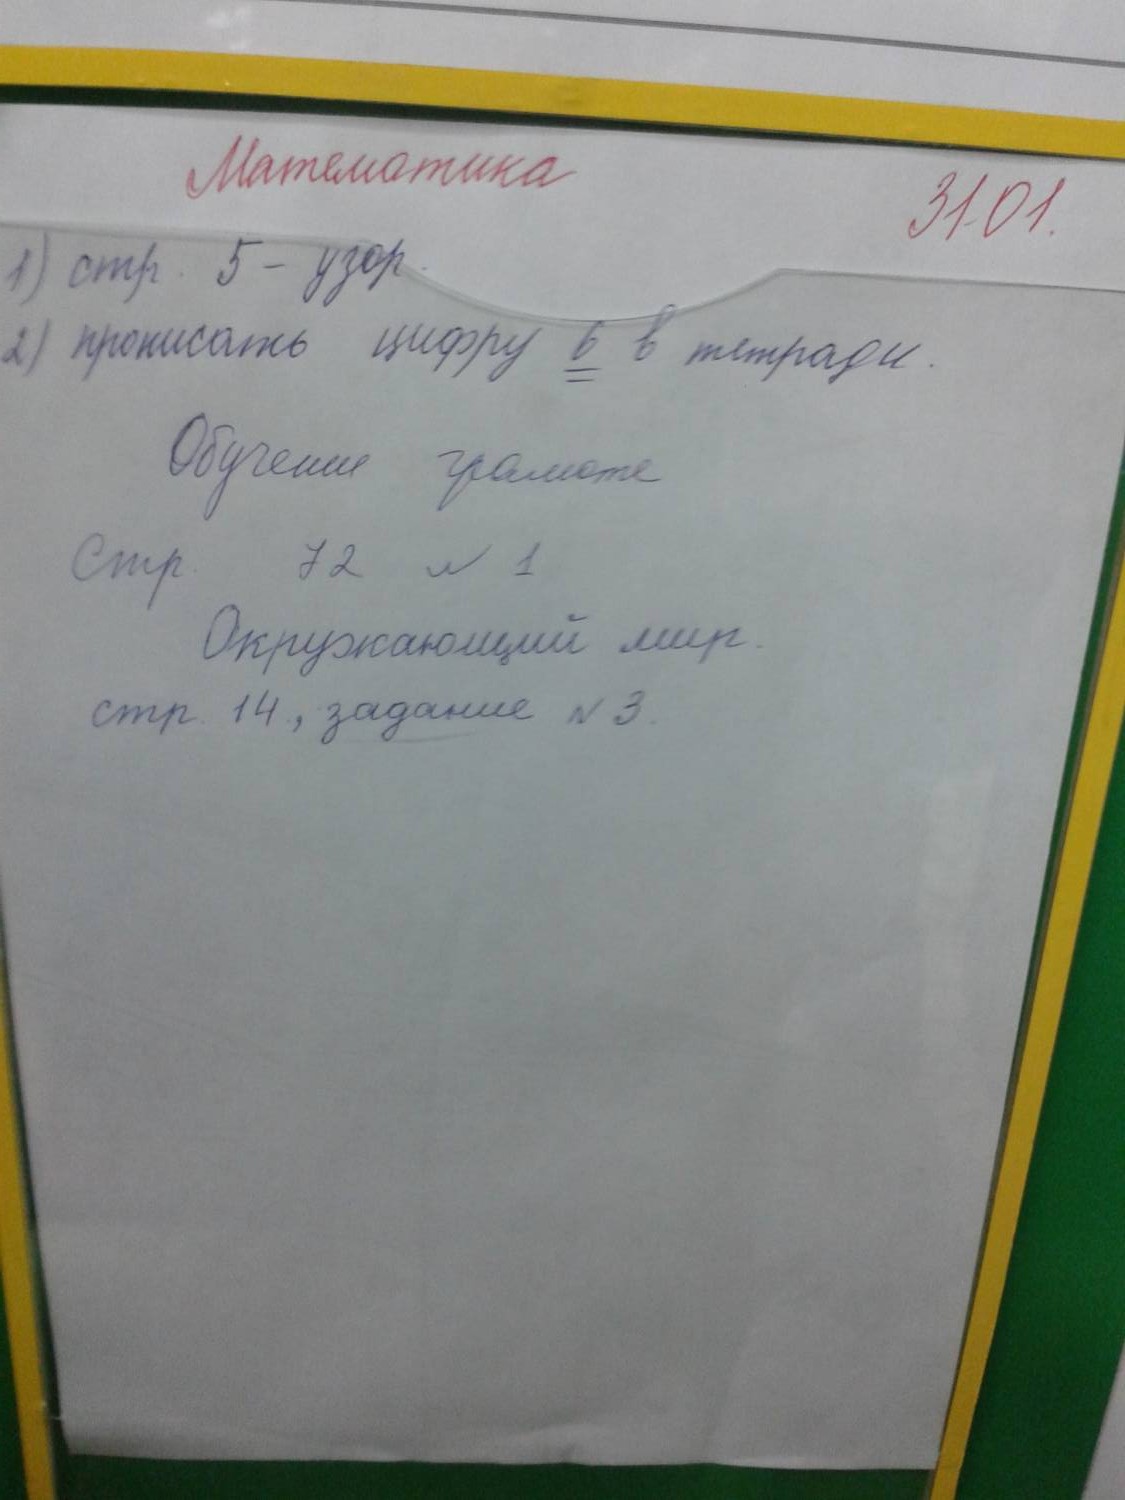 Математика 31.01.
1) стр. 5 - узор.
2) прописать цифру 6 в тетради.
Обучение грамоте
Стр. 72 N 1
Окружающий мир.
стр. 14, задание N 3.